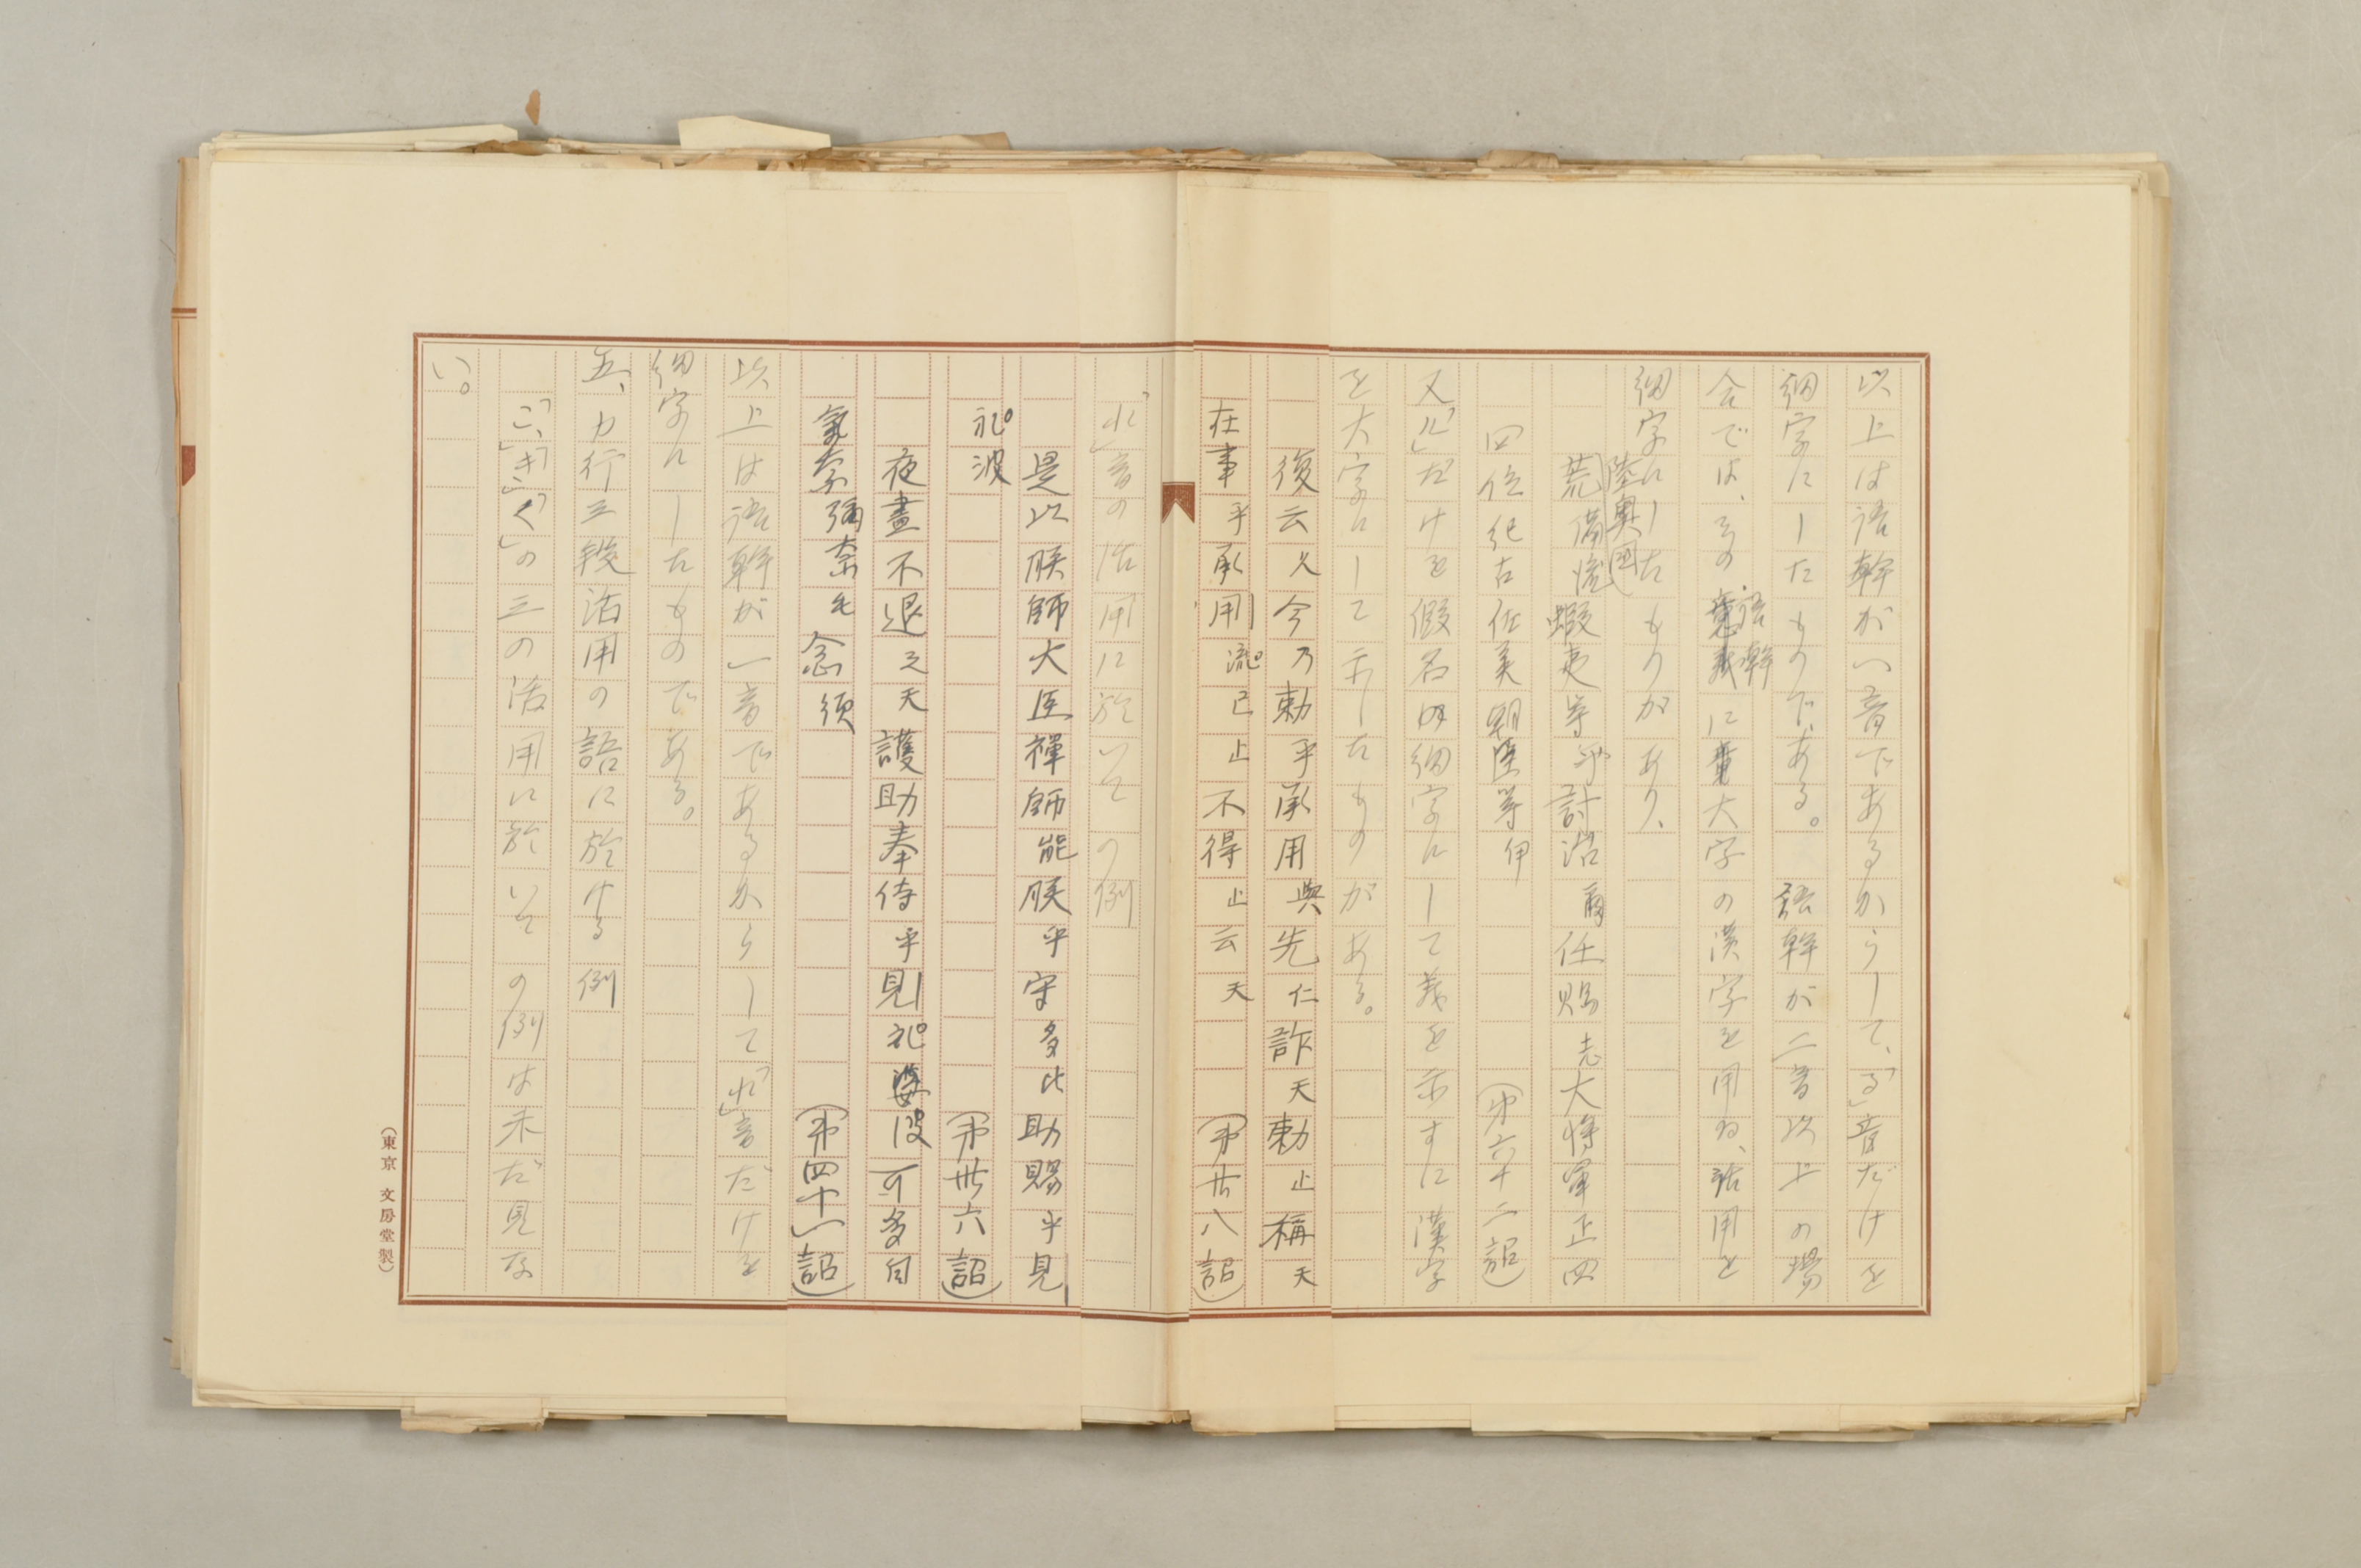 以上は語幹が一音であるからして、「る」音だけを
細字にしたものである。語幹が二音以上の場
合では、その語幹に大字の漢字を用ゐ、活用を
細字にしたものがあり、
陸奥国
荒備流蝦夷等乎討治爾任賜志大将軍正四
位紀古佐美朝臣等伊(第六十二詔)
又「ル」だけを假名の細字にして義を示すに漢字
を大字にして示したものがある。
復云久今乃勅乎承用與先仁詐天勅止稱天
在事乎承用流己止不得止云天(第廿八詔)
「れ」音の活用に於いての例
是以朕師大臣禅師能朕乎守多比助賜乎見
礼波(第卅六詔)
夜晝不退之天護助奉侍乎見礼波可多自
氣奈彌奈毛念須(第四十一詔)
以上は語幹が一音であるからして「れ」音だけを
細字にしたものである。
五、カ行三段活用の語に於ける例
「こ、」「き」「く」の三の活用に於いての例は未だ見な
い。
(東京 文房堂製)